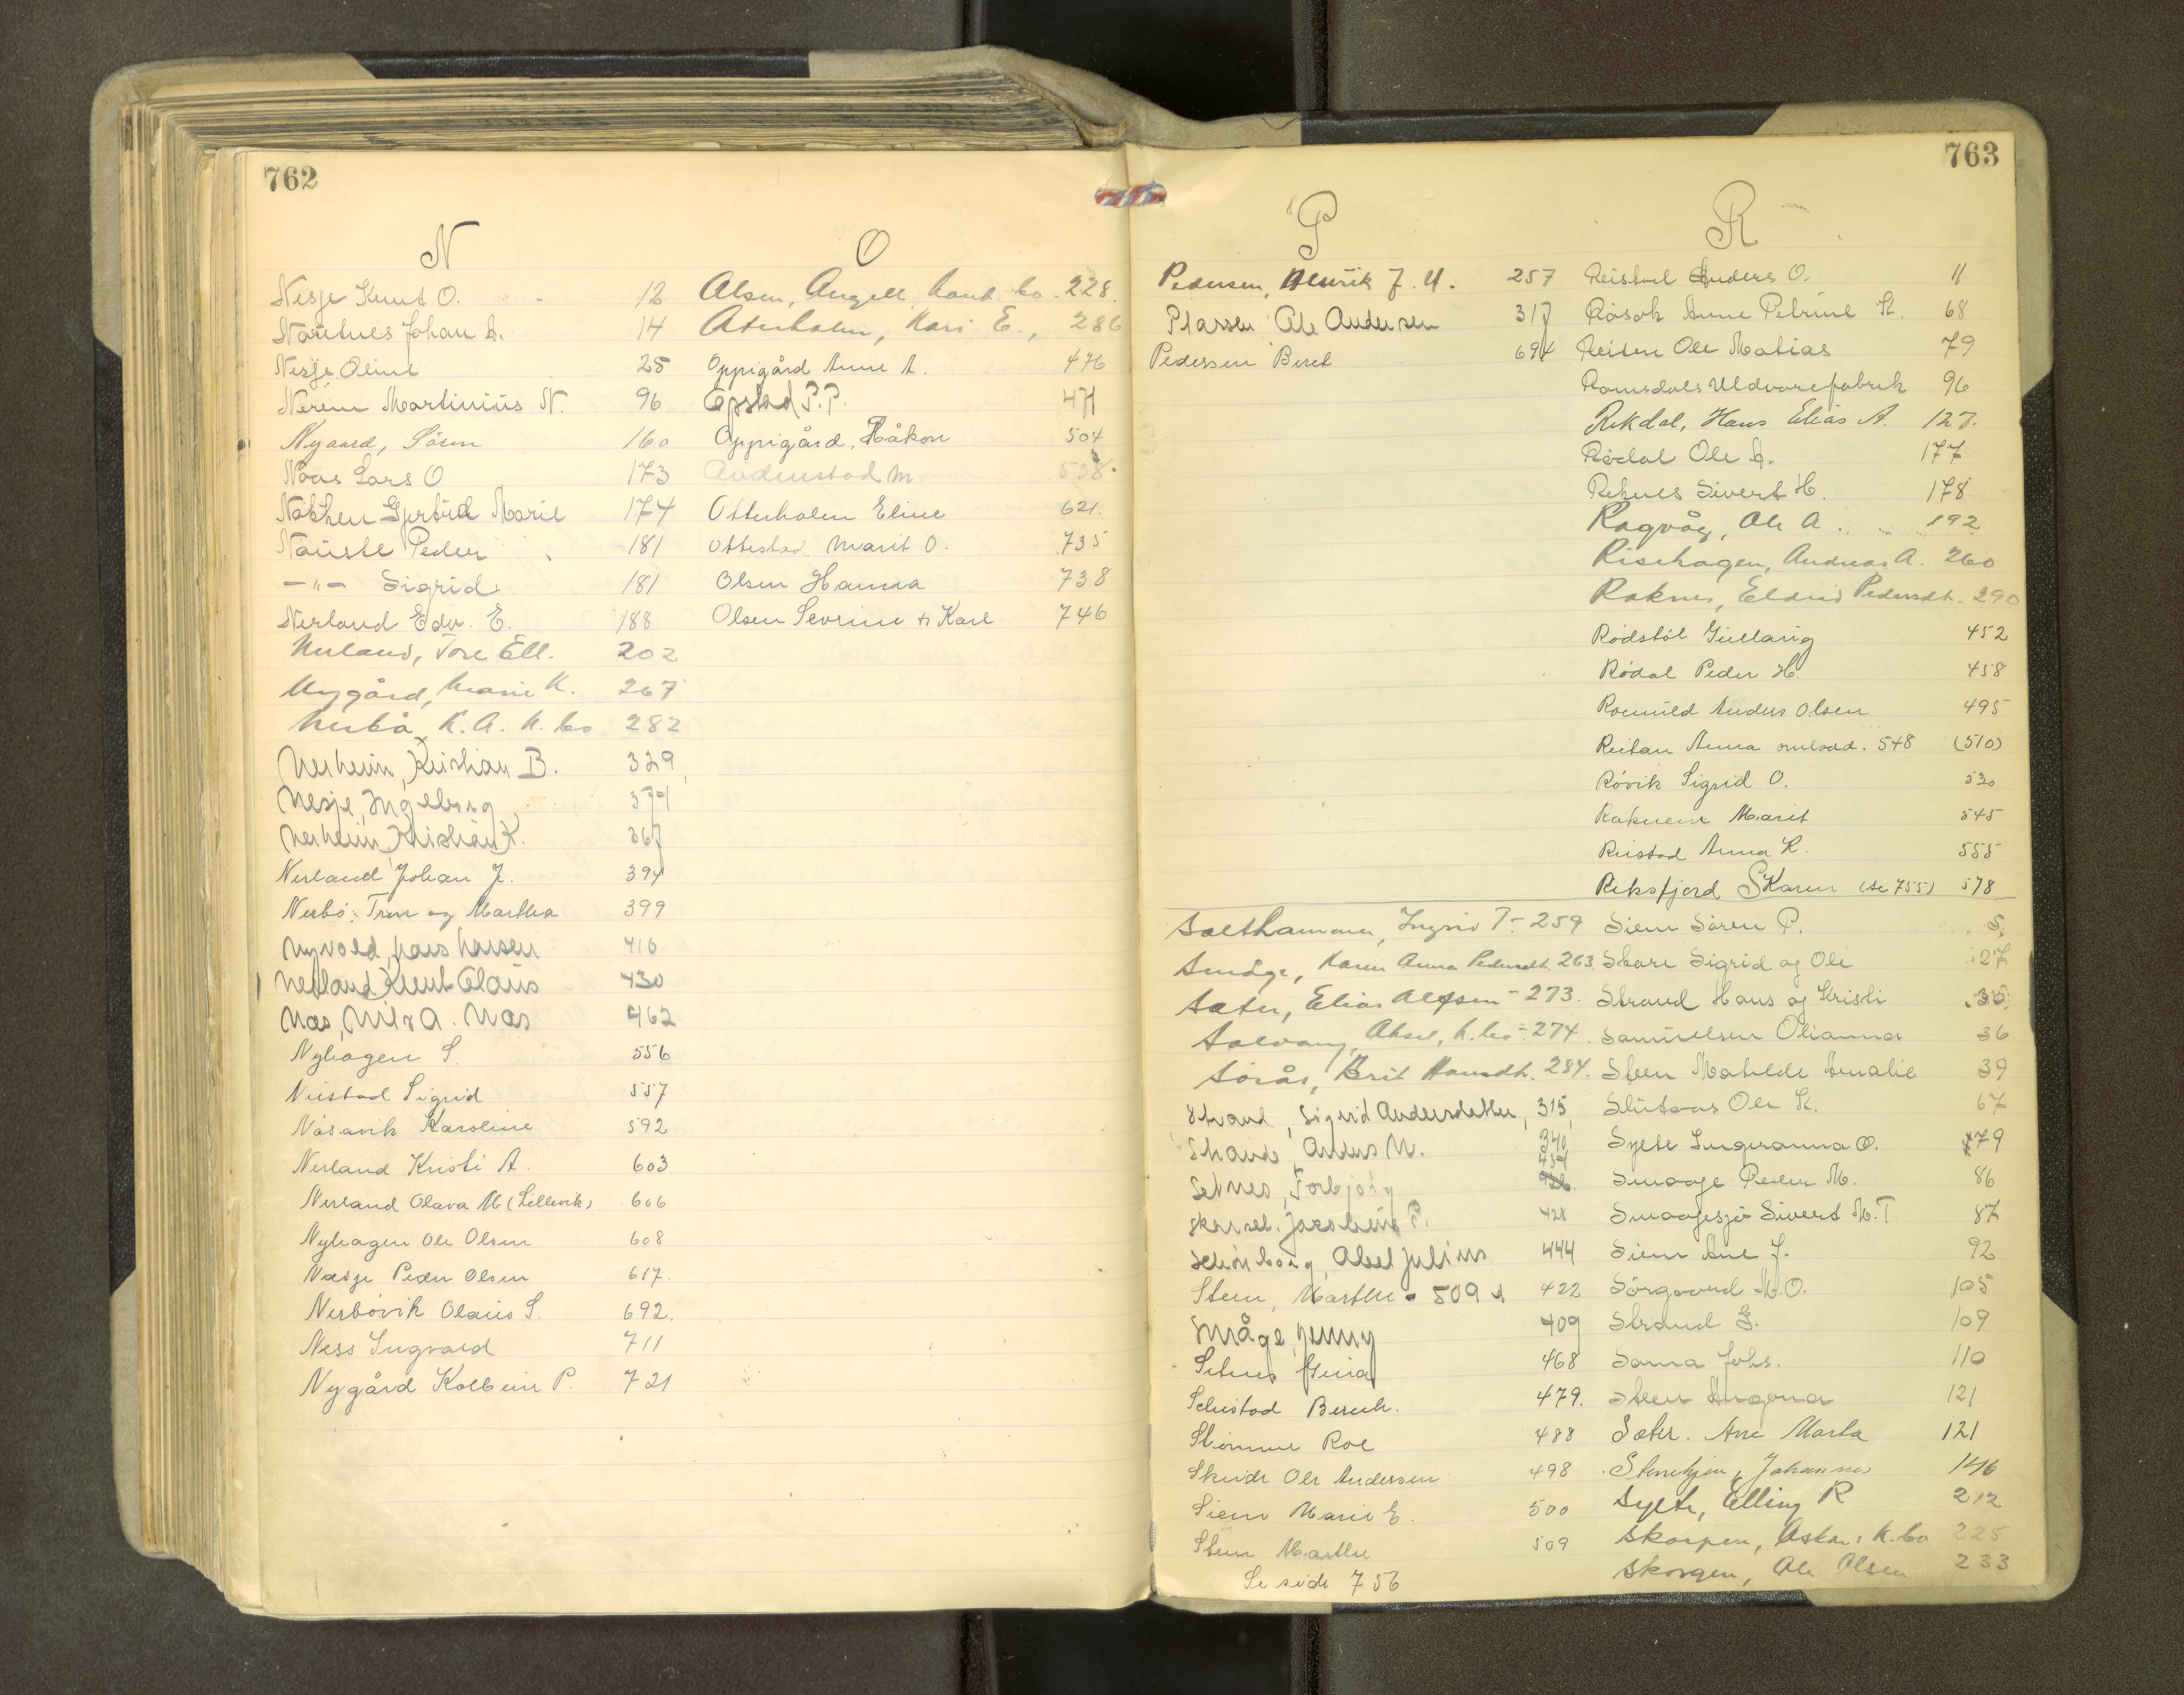 762
N
Nesje Knut O. 12
Nautnes Johan A. 14
Nesje Oline 25
Nerem Martinius N. 96
Nygaard, Søren 160
Naas Lars O 173
Nakken Gjertrud Marie 174
Nauste Peder 181
—"— Sigrid 181
Nerland Edv. E. 188
Nerland, Tore Ell. 202
Nygård, Marie K. 267
Nerbø, K. A. k. bo 282
Nerheim, Kristian B. 329
Nesje, Ingeborg
Nerheim, Kristian K. 367
Nerland Johan J. 394
Nerbø: Tron og Martha 399
Nyvold, Hans Hansen 416
Nerland Knut Olaus 430
Næs, Nils A. Næs 462
Nyhagen S. 556
Neistad Sigrid 557
Nåsavik Karoline 592
Nerland Kristi A. 603
Nerland Olava M (Sellevik) 606
Nyhagen Ole Olsen 608
Næsje Peder Olsen 617.
Nerbøvik Olaus S. 692.
Ness Ingvald 711
Nygård Kolbein P. 721
O
Olsen, Angell, konk. bo. 228.
Oterholm, Kari E., 286
Oppigård Anne A. 476
Opstad P. P. 471
Oppigård, Håkon 504
m 538.
Otterholm Eline 621.
Ottestad Marit O. 735
Olsen Hanna 738
Olsen Sevrine & Karl 746
763
P
Pedersen, Henrik J. U. 257
Plassen Ole Andersen 317
Pederssen Beret 694
R
Reistad Anders O. 11
Røsok Anne Petrine K. 68
Reiten Ole Matias 79
Romsdals Uldvarefabrik 96
Rekdal, Hans Elias A. 127.
Rødal Ole A. 177
Reknes Sivert H. 178
Ragvåg, Ole A. 192
Rischagen, Andreas A. 260
Raknes, Eldrid Pedersdt. 290
Rødstøl Gullaug 452
Rødal Peder H. 458
Roemild Anders Olsen 495
Reitan Anna omlodd. 548 (510)
Røvik Sigrid O. 530
Raknem Marit 545
Reistad Anna K. 555
Reksfjord S Karen (se 755) 578
Salthammer, Ingrid T. - 259
Smøge, Karen Anna Pedersdt. 263
Sæter, Elias Olsen - 273.
Solvang, Aksel, k. bo - 274.
Sørås, Brit Hansdt. 284.
Strand, Sigrid Andersdatter, 315,
Strande Anders N. 340
Setnes, Torbjørg 454
Jacobine P. 428
Schönborg, Abel Julius 444
Stene, Marthe 509 422
Småge, Jenny 409
Setnes Gina 468
Selnstad Bernh. 479.
Strømme Roe 488
Skeide Ole Andersen 498
Siem Marie E. 500
Stene Marthe 509
Se side 756
Siem Søren P. 5
Skare Sigrid og Ole 27
Strand Hans og Kristi 35
Samuelsen Olianna 36
Steen Matilde Amalie 39
Slutaas Ole K. 67
Sylte Ingeranna O. 79
Smaage Peder M. 86
Smaagesjø Sivert M. T. 87
Siem Ane J. 92
Sørgaard M. O. 105
Strand G. 109
Sanna Johs. 110
Steen 121
Sæter. Ane Marta 121
Johannes 146
Sylte, Elling R 212
Skorpen, Oskar: k. bo 225
Skorgen, Ole Olsen 233